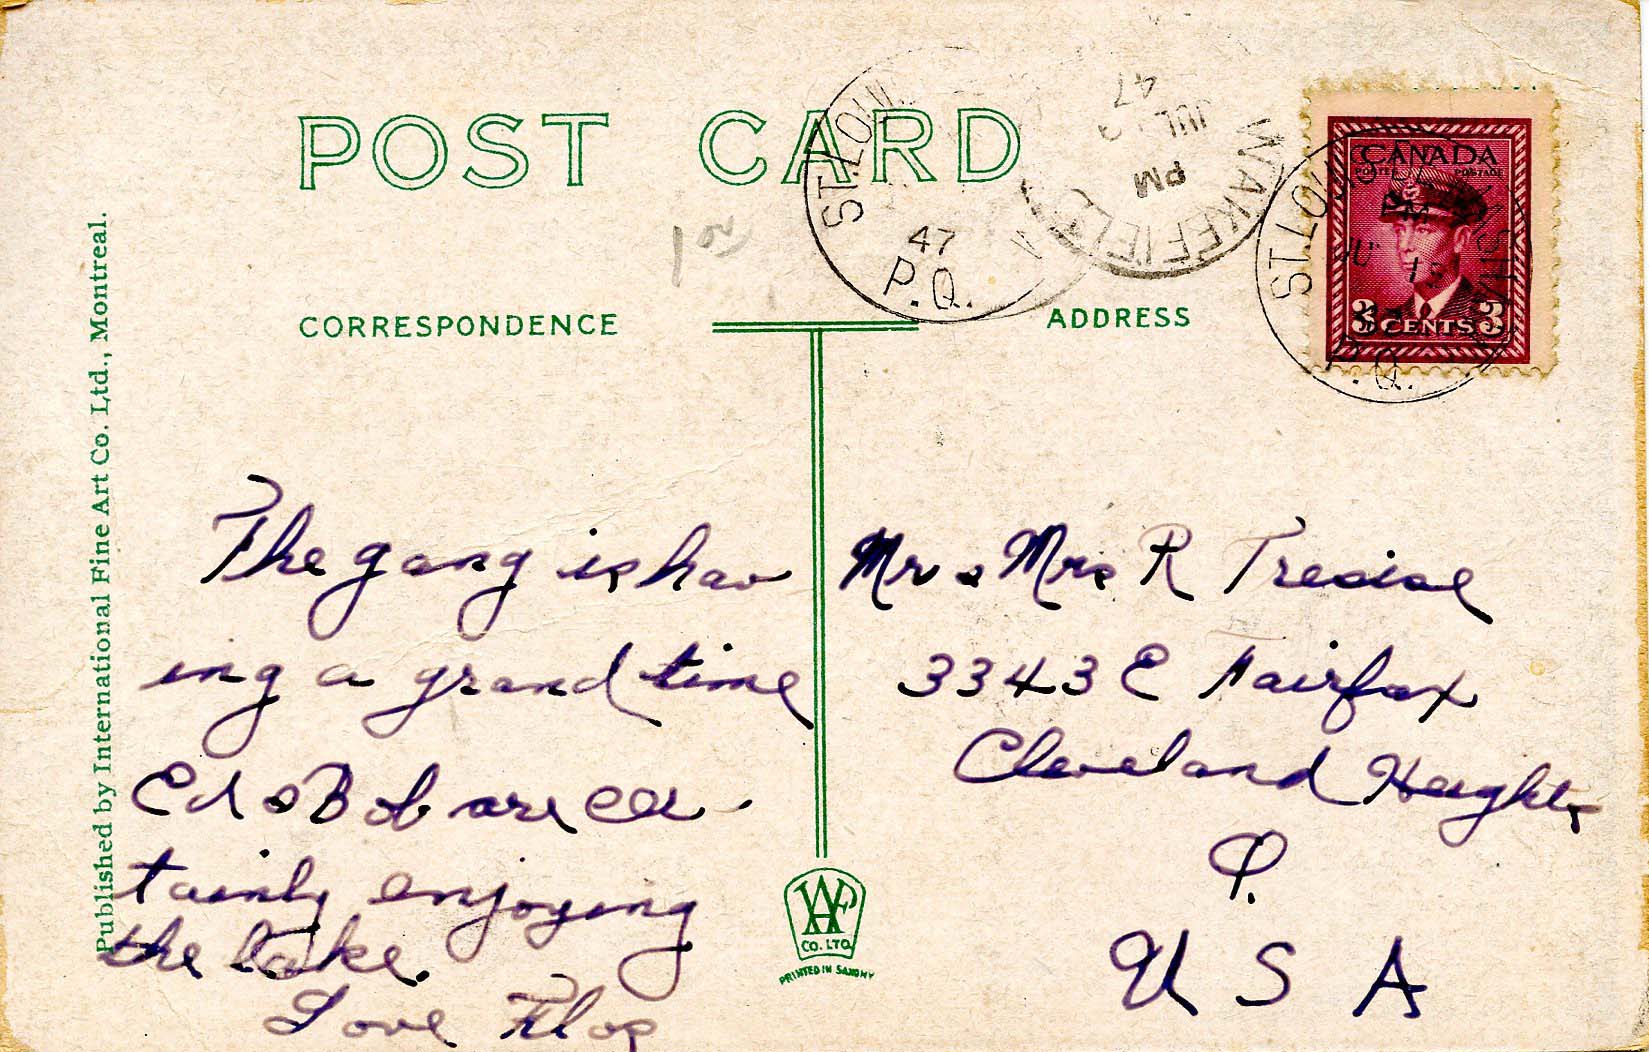 POST CARD
CORRESPONDENCE
ADDRESS
Published by International Fine Art Co. Ltd., Montreal.
ST. LOUIS
47
P.Q.
WAKEFIELD
PM
JUL
47
CANADA
POSTES POSTAGE
3 CENTS 3
ST. LOUIS
PM
JU 15
P.Q.
The gang is hav
ing a grand time
Ed & Bob are cer
tainly enjoying
the lake.
Love Flos
Mr & Mrs R Tresise
3343 E Fairfax
Cleveland Heights
O.
U S A
CO. LTD.
PRINTED IN SAXONY